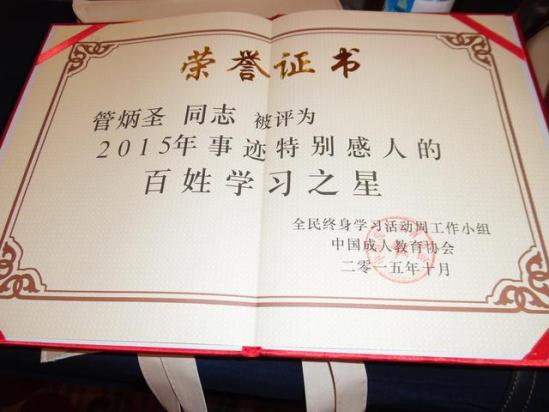 荣誉证书
管炳圣 同志 被评为
2015年事迹特别感人的
百姓学习之星
全民终身学习活动周工作小组
中国成人教育协会
二零一五年十月